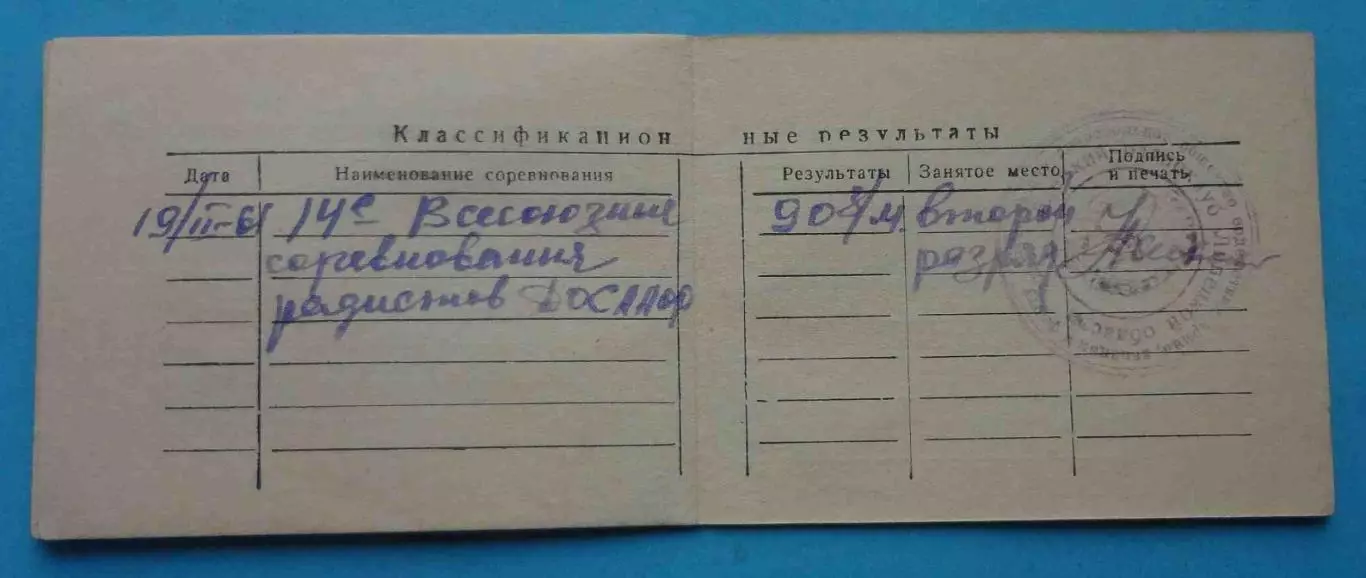 Классификацион ные результаты
Дата Наименование соревнования Результаты Занятое место Подпись и печать
19/II-61 14е Всесоюзные 90 з/м. второй
соревнования разряд
радистов ДОСААФ
клуб Липецкой области